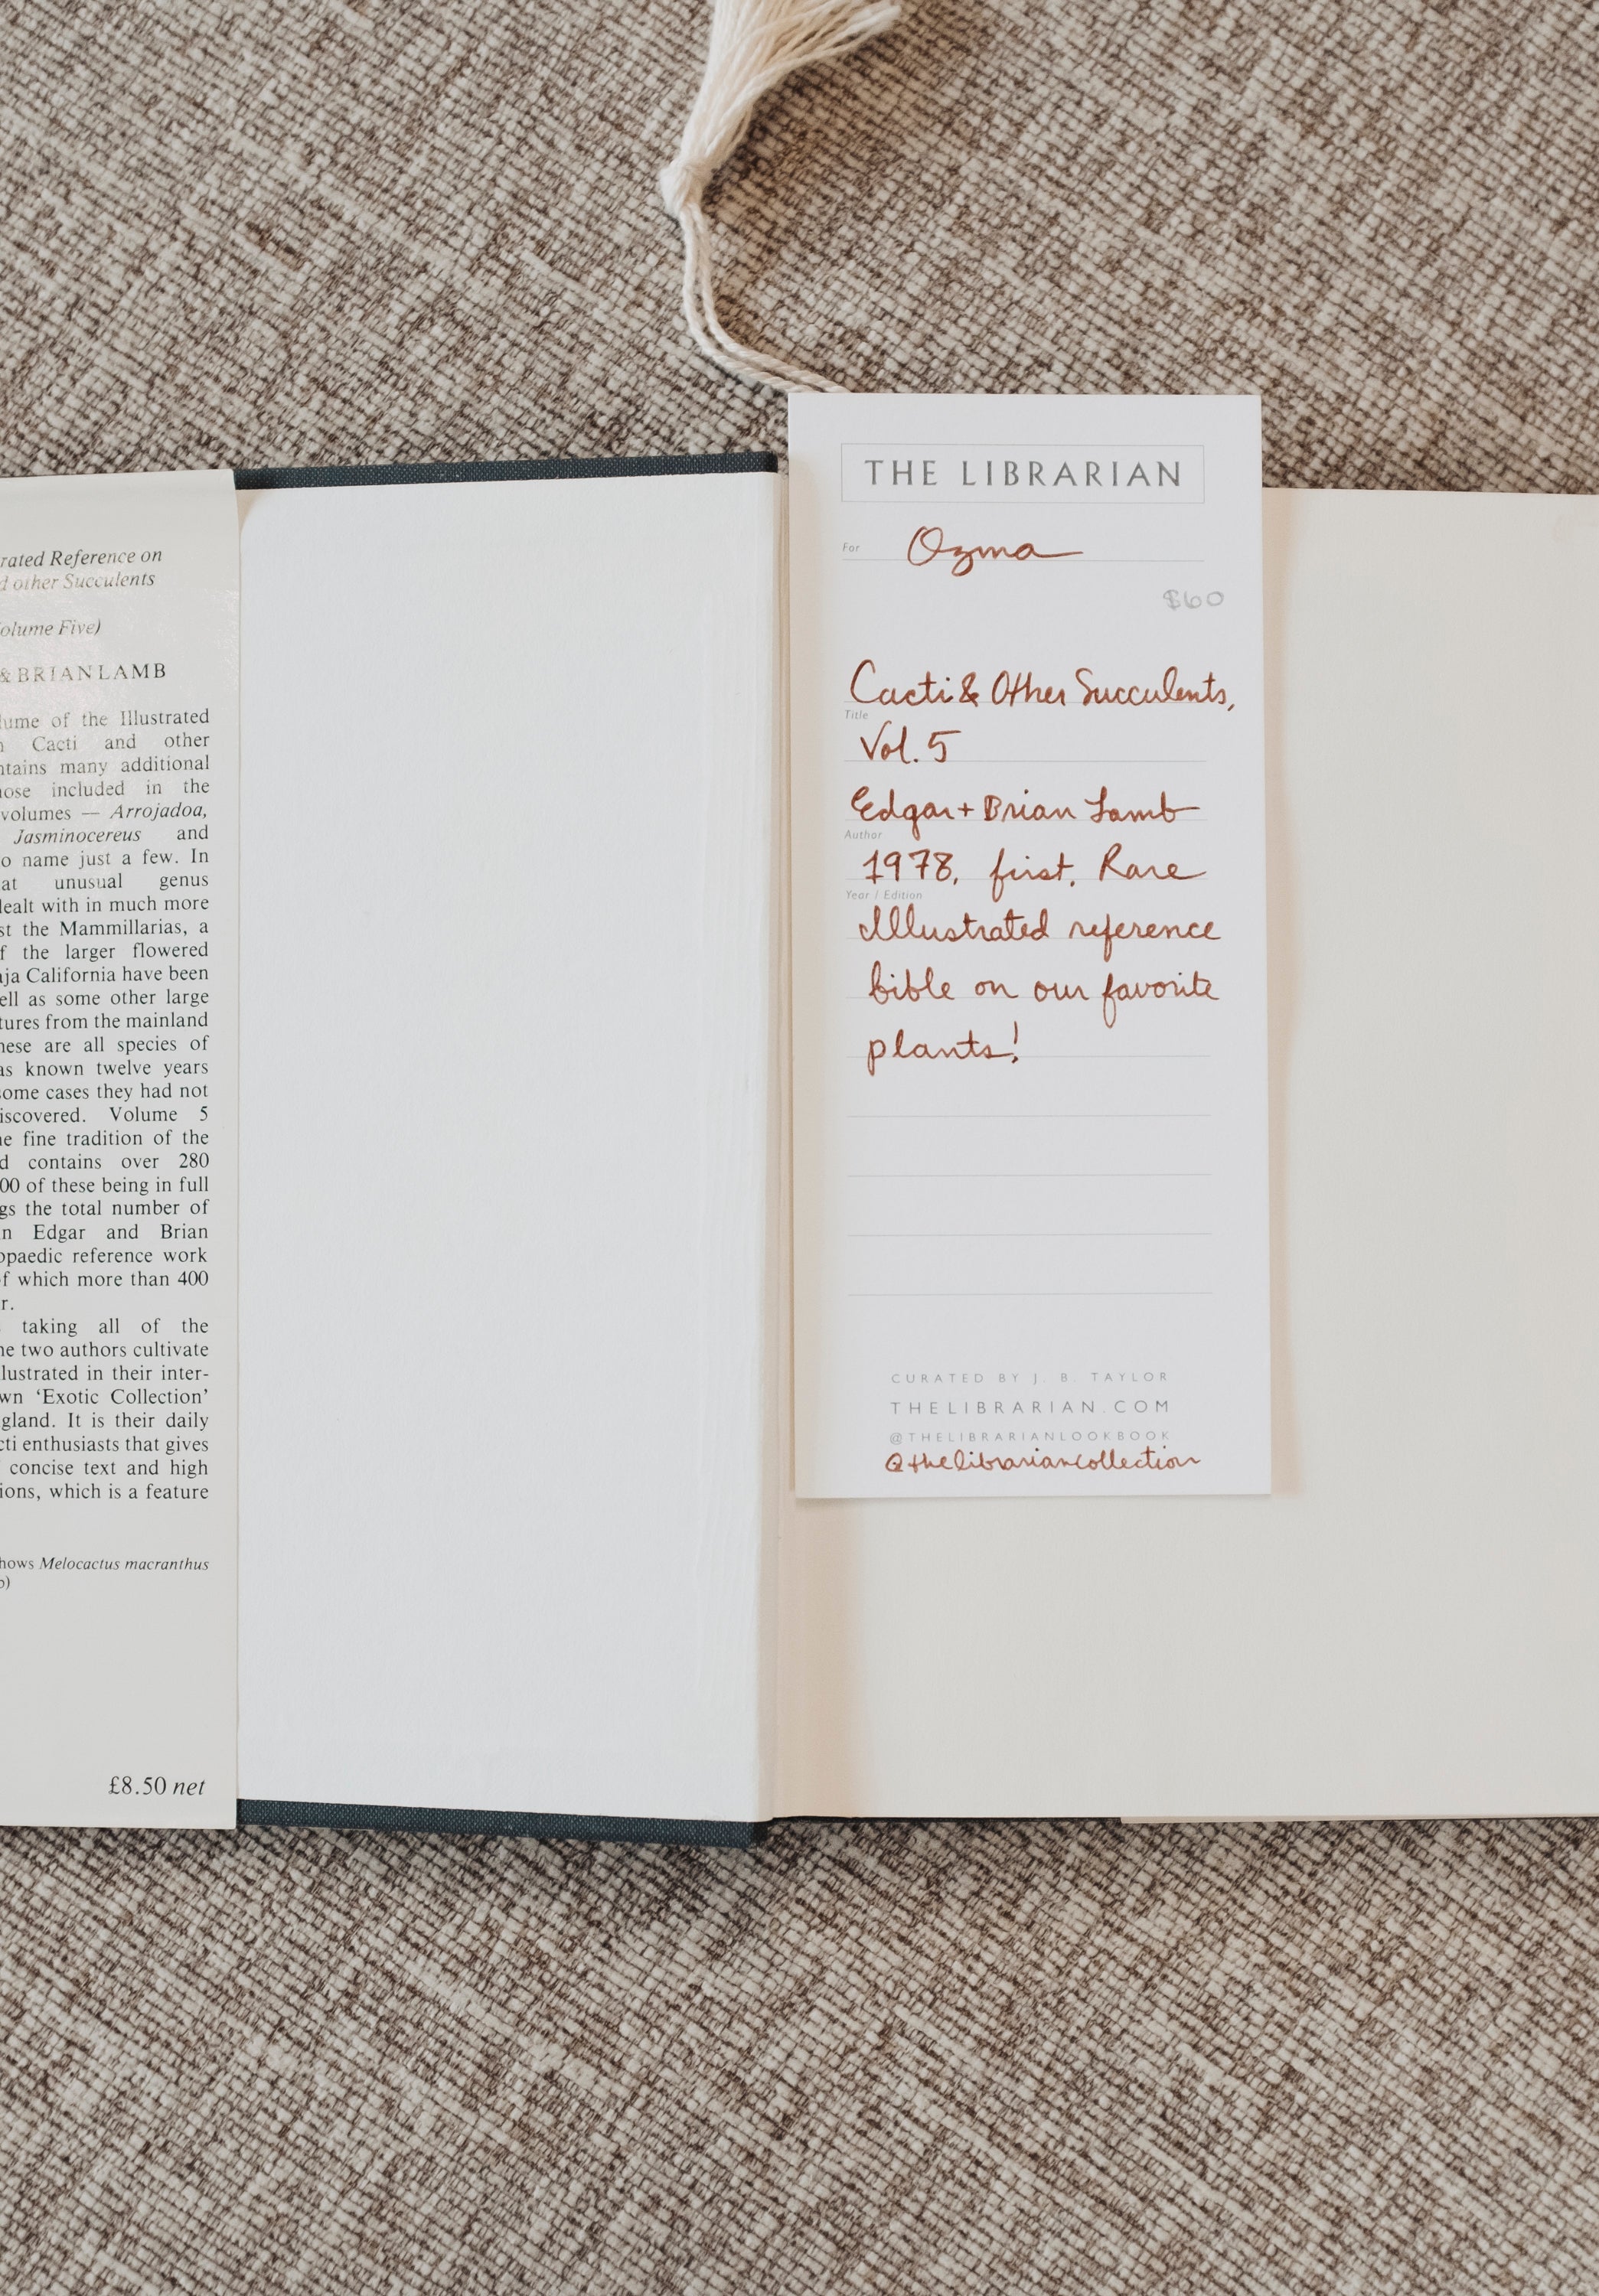 rated Reference on
d other Succulents
olume Five)
& BRIAN LAMB
lume of the Illustrated
n Cacti and other
ntains many additional
hose included in the
volumes — Arrojadoa,
Jasminocereus and
o name just a few. In
at unusual genus
dealt with in much more
st the Mammillarias, a
f the larger flowered
aja California have been
ell as some other large
tures from the mainland
hese are all species of
as known twelve years
some cases they had not
iscovered. Volume 5
he fine tradition of the
d contains over 280
00 of these being in full
gs the total number of
in Edgar and Brian
opaedic reference work
of which more than 400
r.
taking all of the
he two authors cultivate
llustrated in their inter-
wn ‘Exotic Collection’
gland. It is their daily
cti enthusiasts that gives
concise text and high
ions, which is a feature
hows Melocactus macranthus
b)
£8.50 net
THE LIBRARIAN
For Ozma
$60
Cacti & Other Succulents,
Title
Vol. 5
Edgar + Brian Lamb
Author
1978, first, Rare
Year / Edition
Illustrated reference
bible on our favorite
plants!
CURATED BY J. B. TAYLOR
THELIBRARIAN.COM
@THELIBRARIANLOOKBOOK
@thelibrariancollection